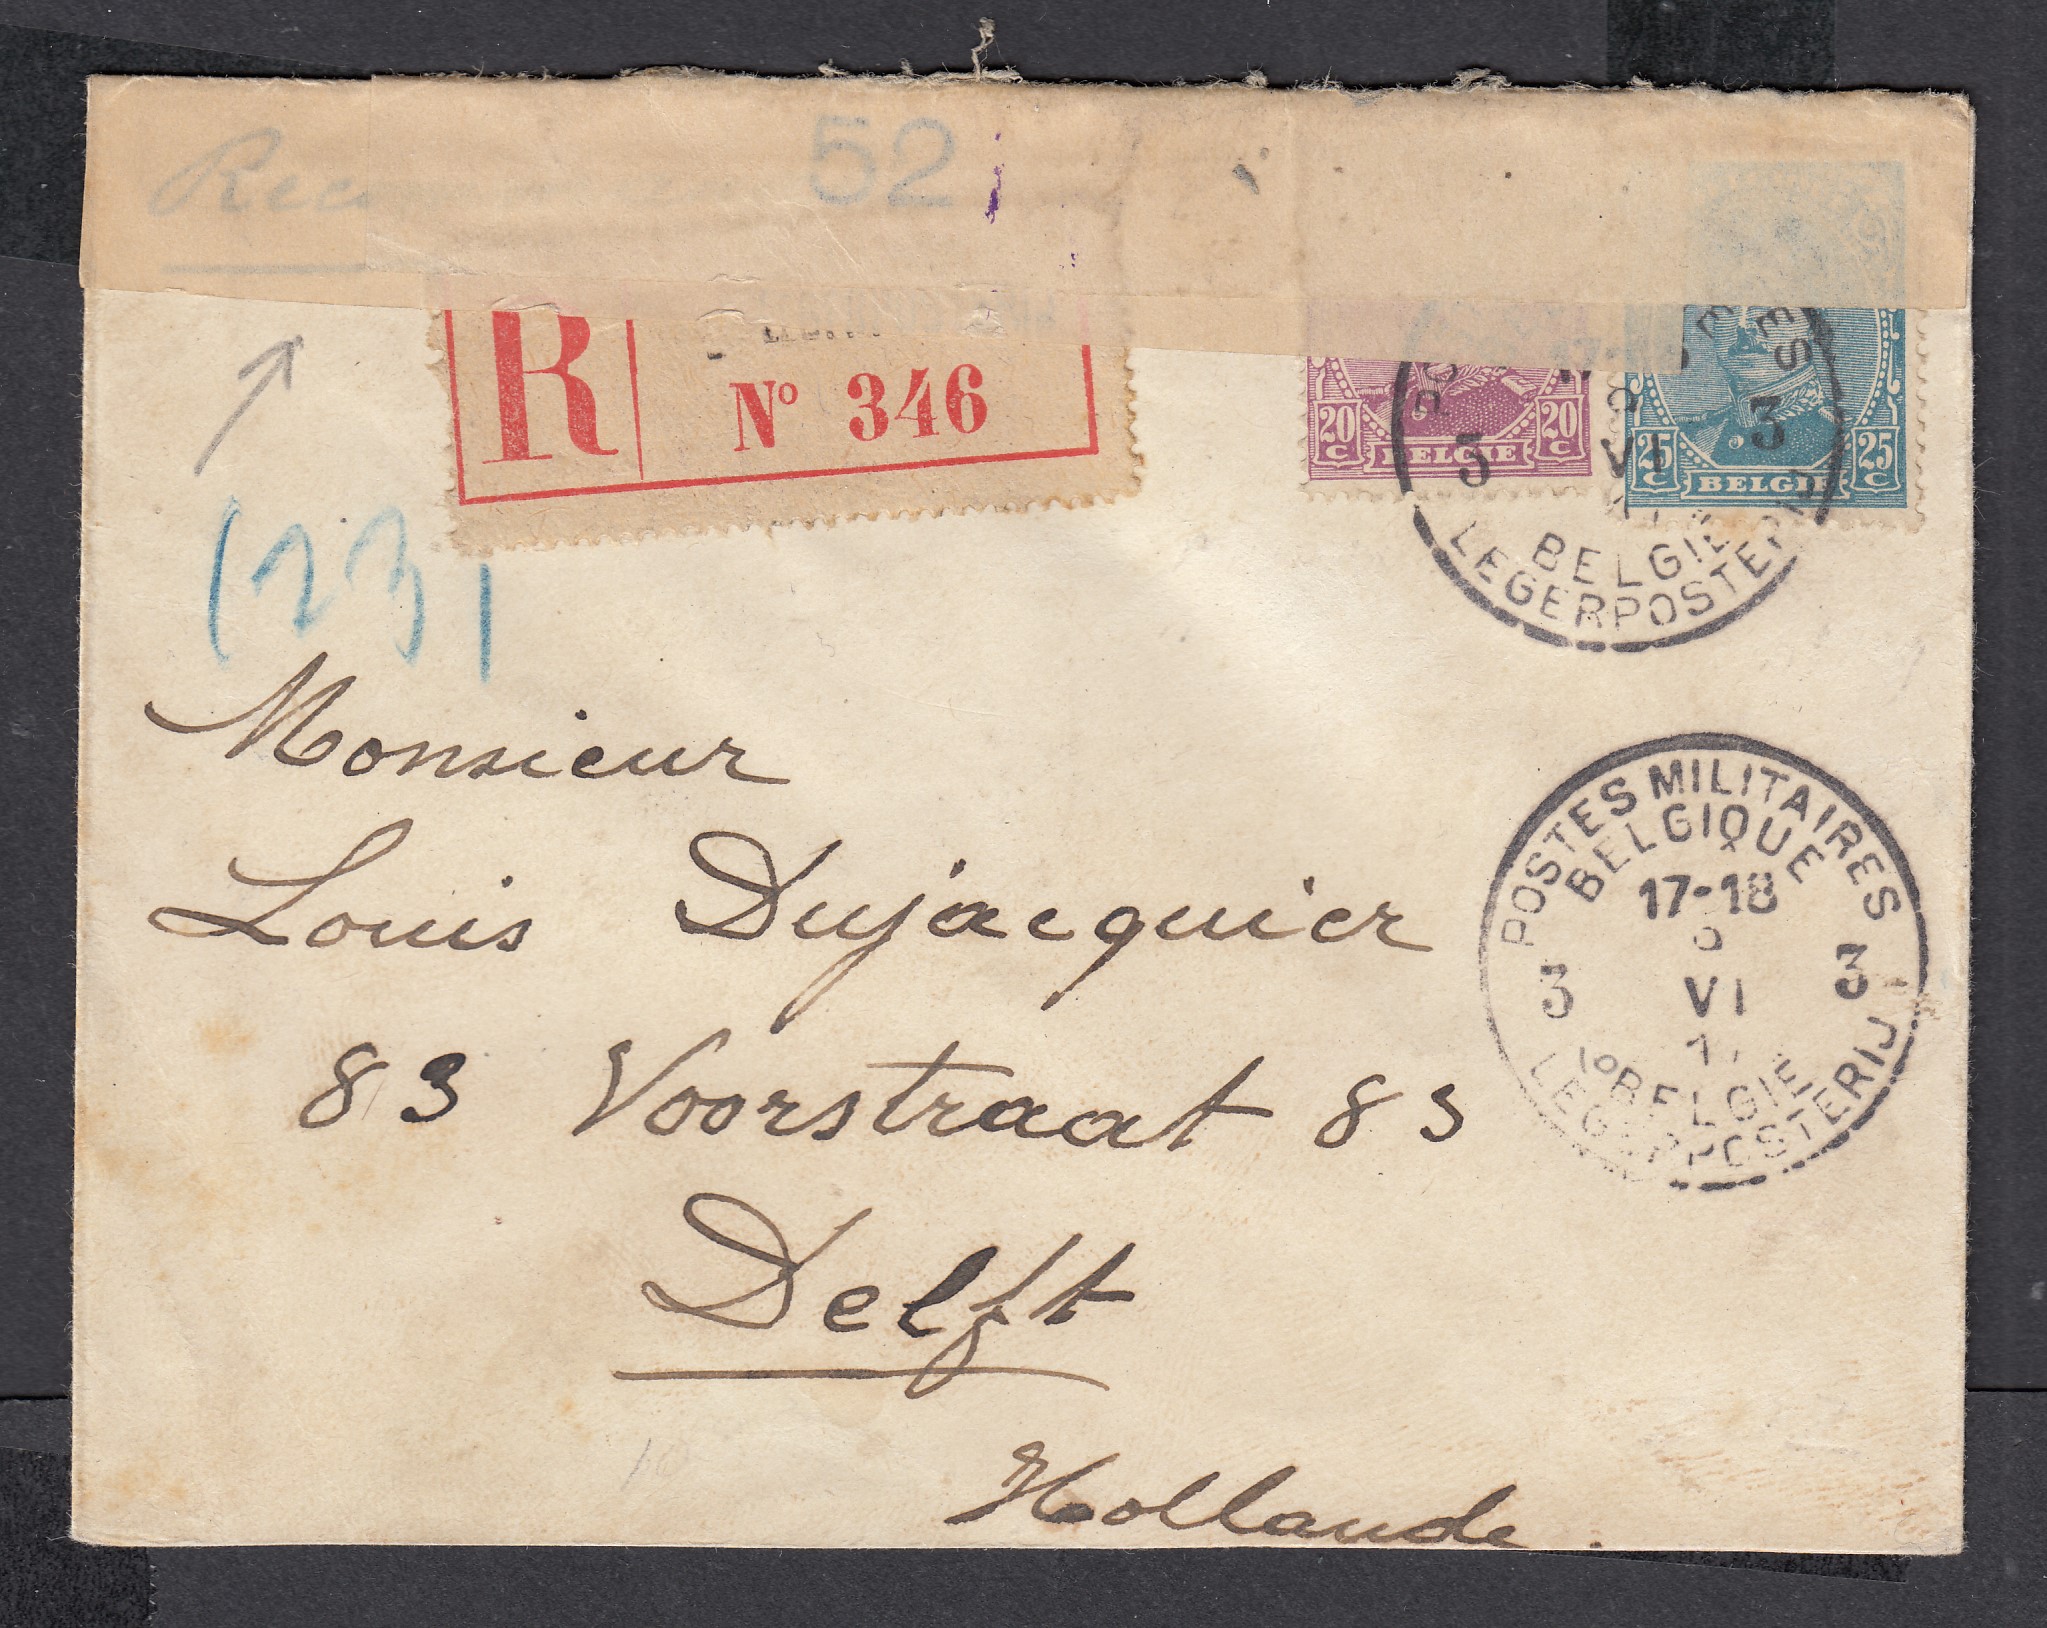 52
R
Nº 346
20 C BELGIE 20 C
25 C BELGIE 25 C
3 VI 3
BELGIE
LEGERPOSTERIJ
(23)
Monsieur
Louis Dujacquier
83 Voorstraat 83
Delft
Hollande.
POSTES MILITAIRES
BELGIQUE
17-18
3 VI 3
BELGIE
LEGERPOSTERIJ